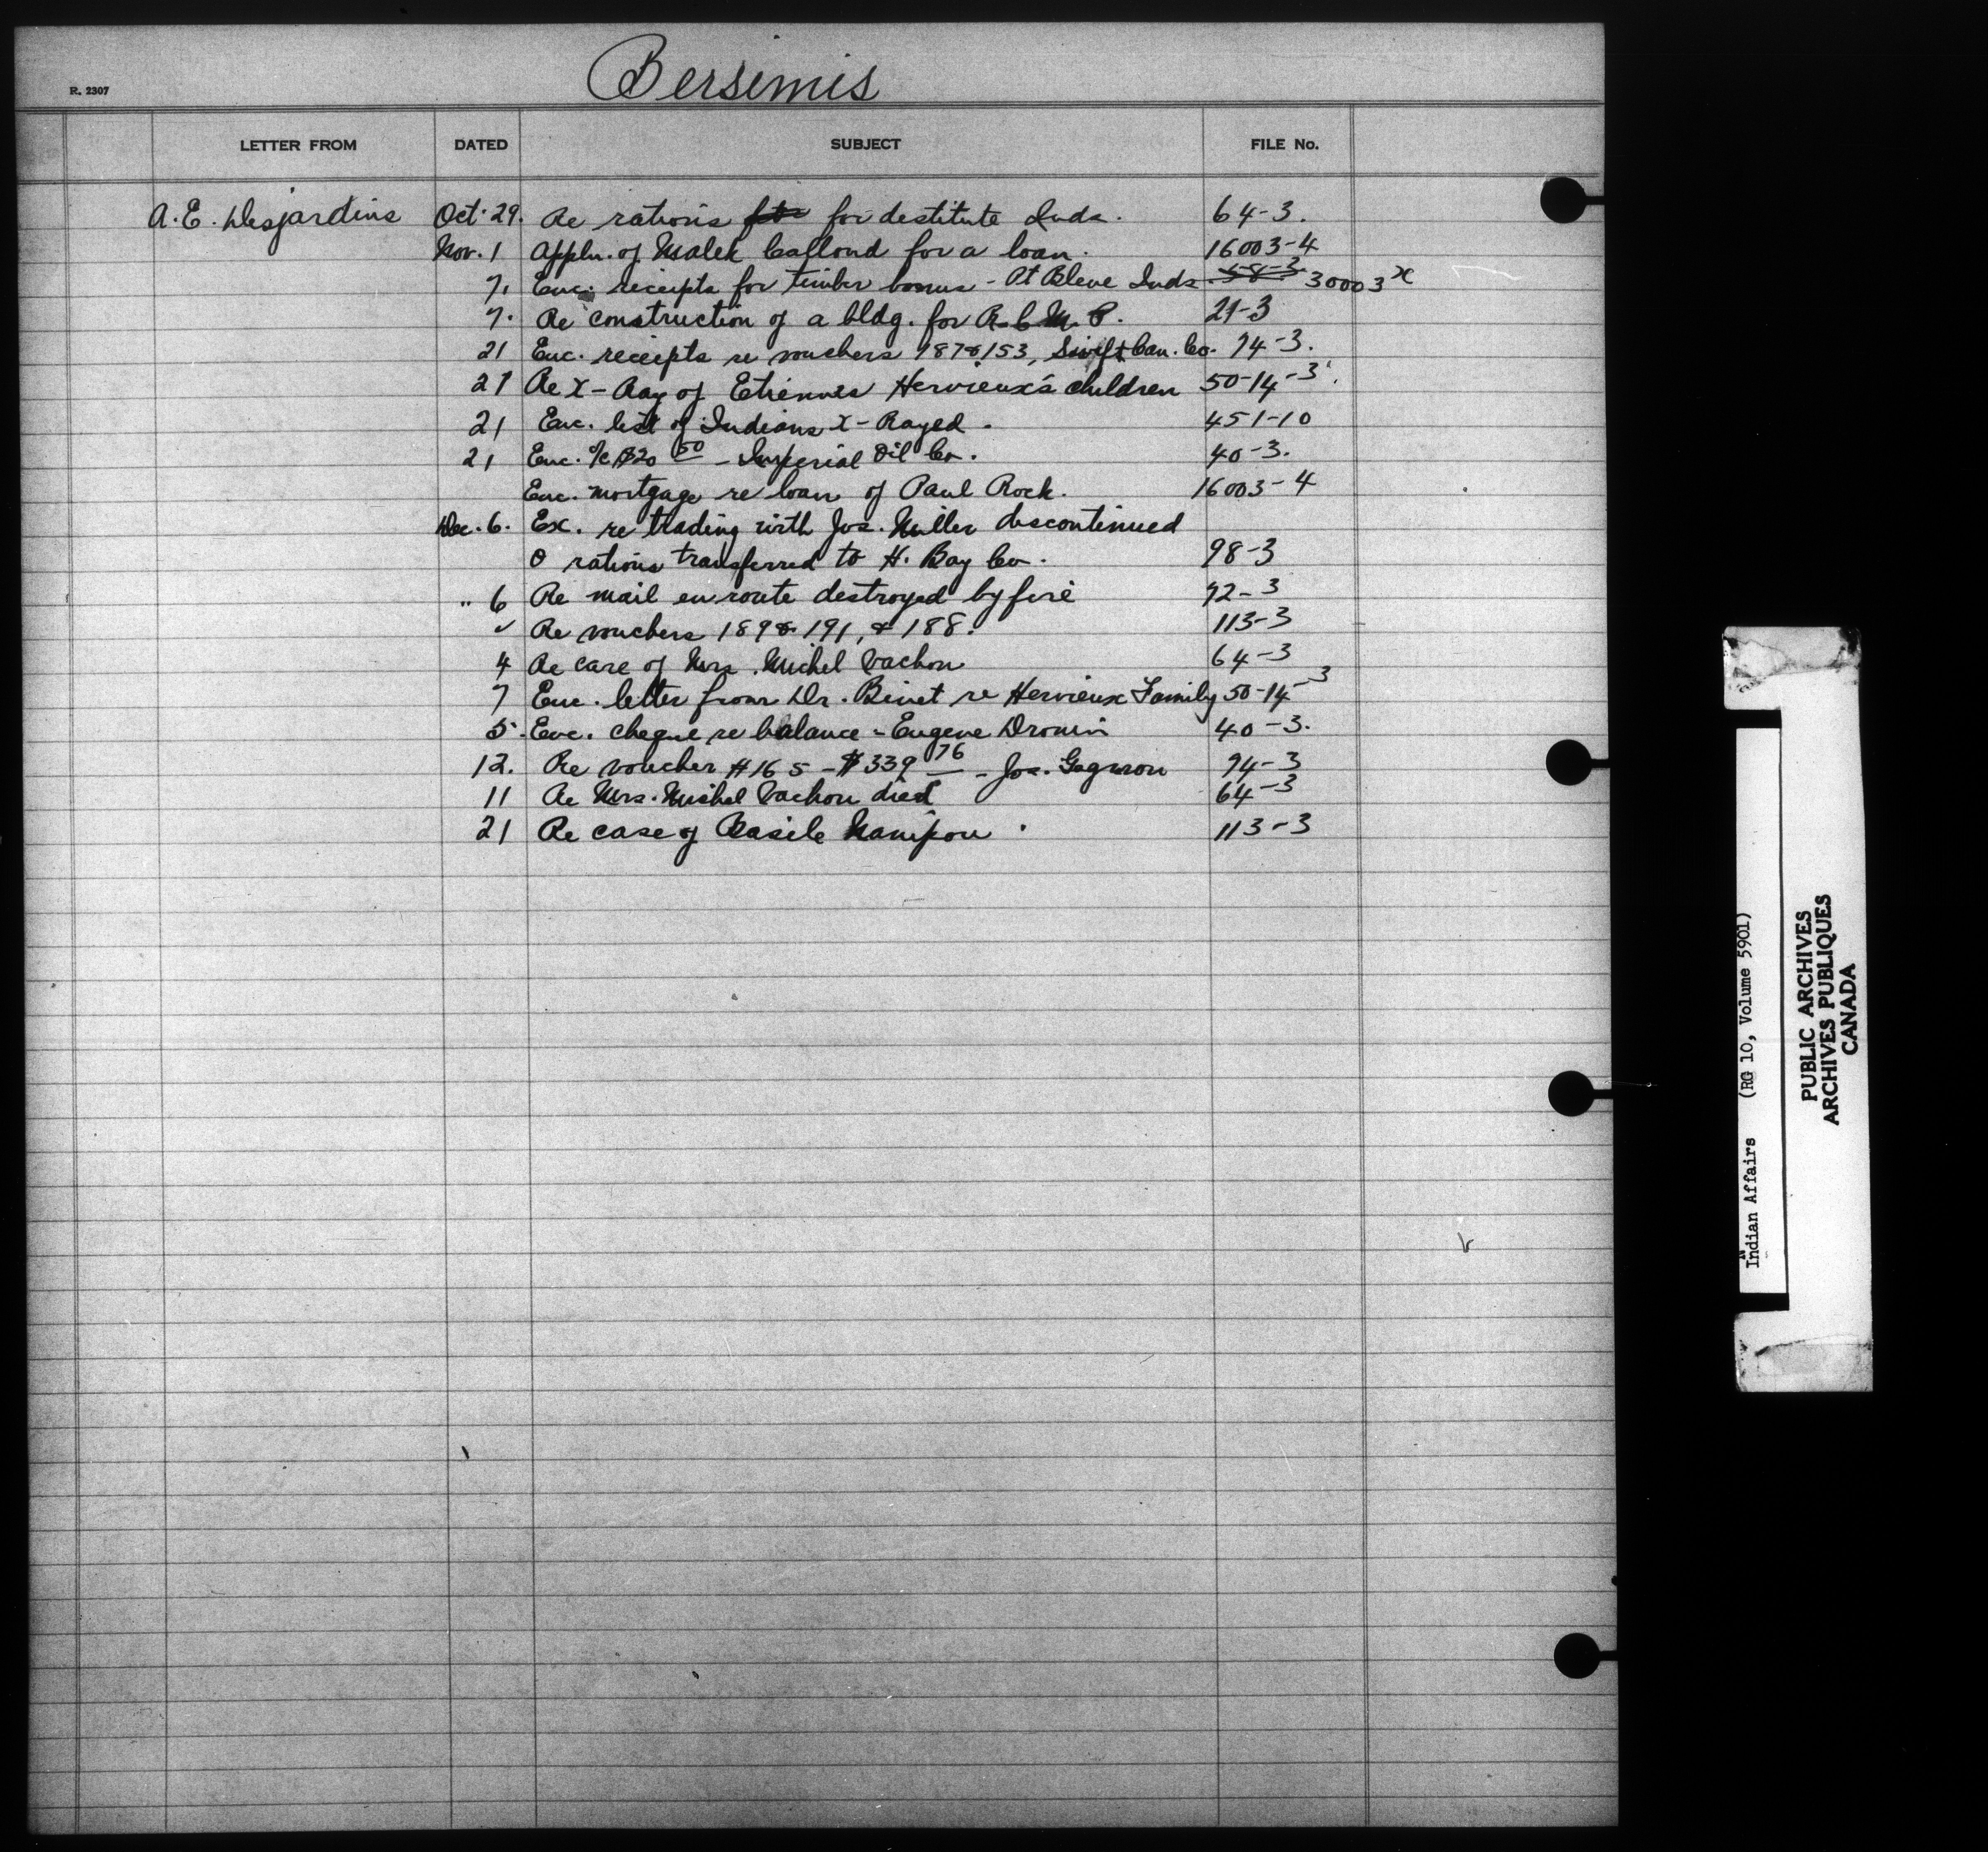 Bersimis
R. 2307
LETTER FROM DATED SUBJECT FILE No.
A. E. Desjardins Oct. 29. Re rations for destitute Inds. 64-3.
Nov. 1 Appln. of Malek for a loan. 16003-4
7. Enc. receipts for timber bonus - Pt Bleue Inds 58-3 30003 x
7. Re construction of a bldg. for R.C.M.P. 21-3
21 Enc. receipts re vouchers 187 & 153, Swift Can. Co. 74-3.
21 Re X-Ray of Etiennes Hervieux's children 50-14-3.
21 Enc. list of Indians X-Rayed. 451-10
21 Enc. a/c $20 50 - Imperial Oil Co. 40-3.
Enc. mortgage re loan of Paul Rock. 16003-4
Dec. 6. Ex. re trading with Jos. Miller discontinued
& rations transferred to H. Bay Co. 98-3
" 6 Re mail en route destroyed by fire 92-3
Re vouchers 189 & 191, & 188. 113-3
4 Re care of Mrs. Michel Vachon 64-3
7 Enc. letter from Dr. Binet re Hervieux Family 50-14-3
5. Enc. cheque re balance - Eugene Drouin 40-3.
12. Re voucher #165 - $339 76 - Jos. Gagnon 94-3
11 Re Mrs. Michel Vachon died 64-3
21 Re case of Basile 113-3
Indian Affairs (RG 10, Volume 5901)
PUBLIC ARCHIVES
ARCHIVES PUBLIQUES
CANADA